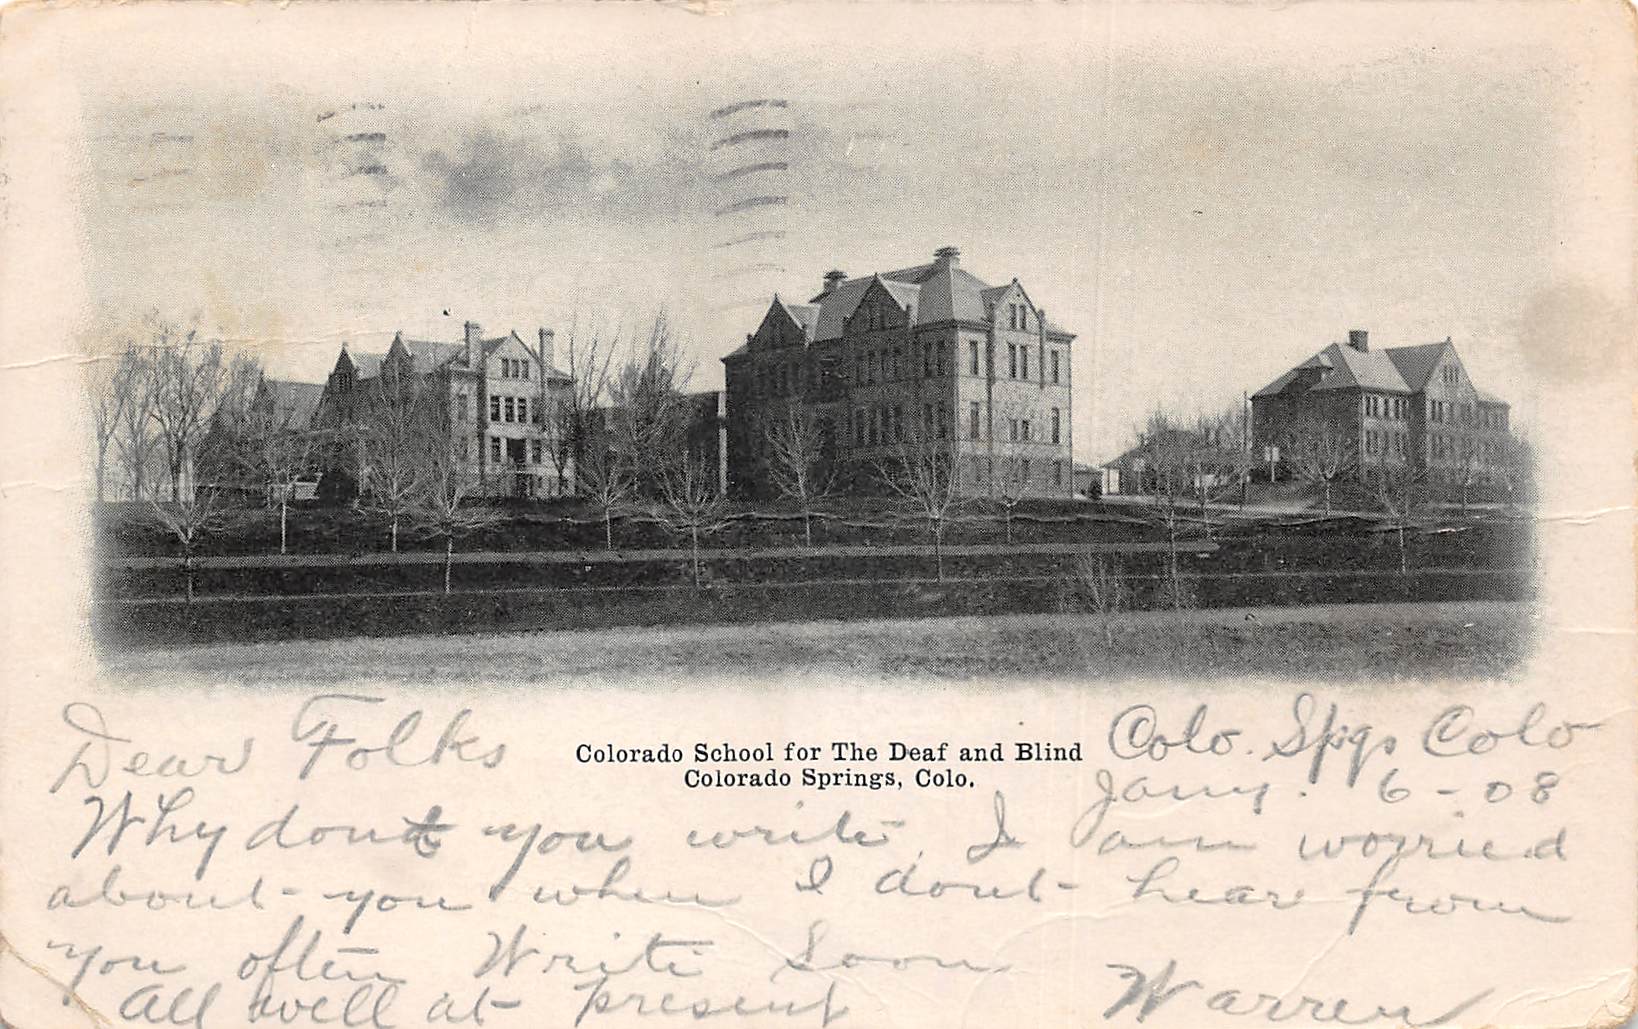 Colorado School for The Deaf and Blind
Colorado Springs, Colo.
Colo. Spgs Colo
Jany. 6-08
Dear Folks
Why dont you write, I am worried
about you when I dont hear from
you often Write Soon
All well at present Warren